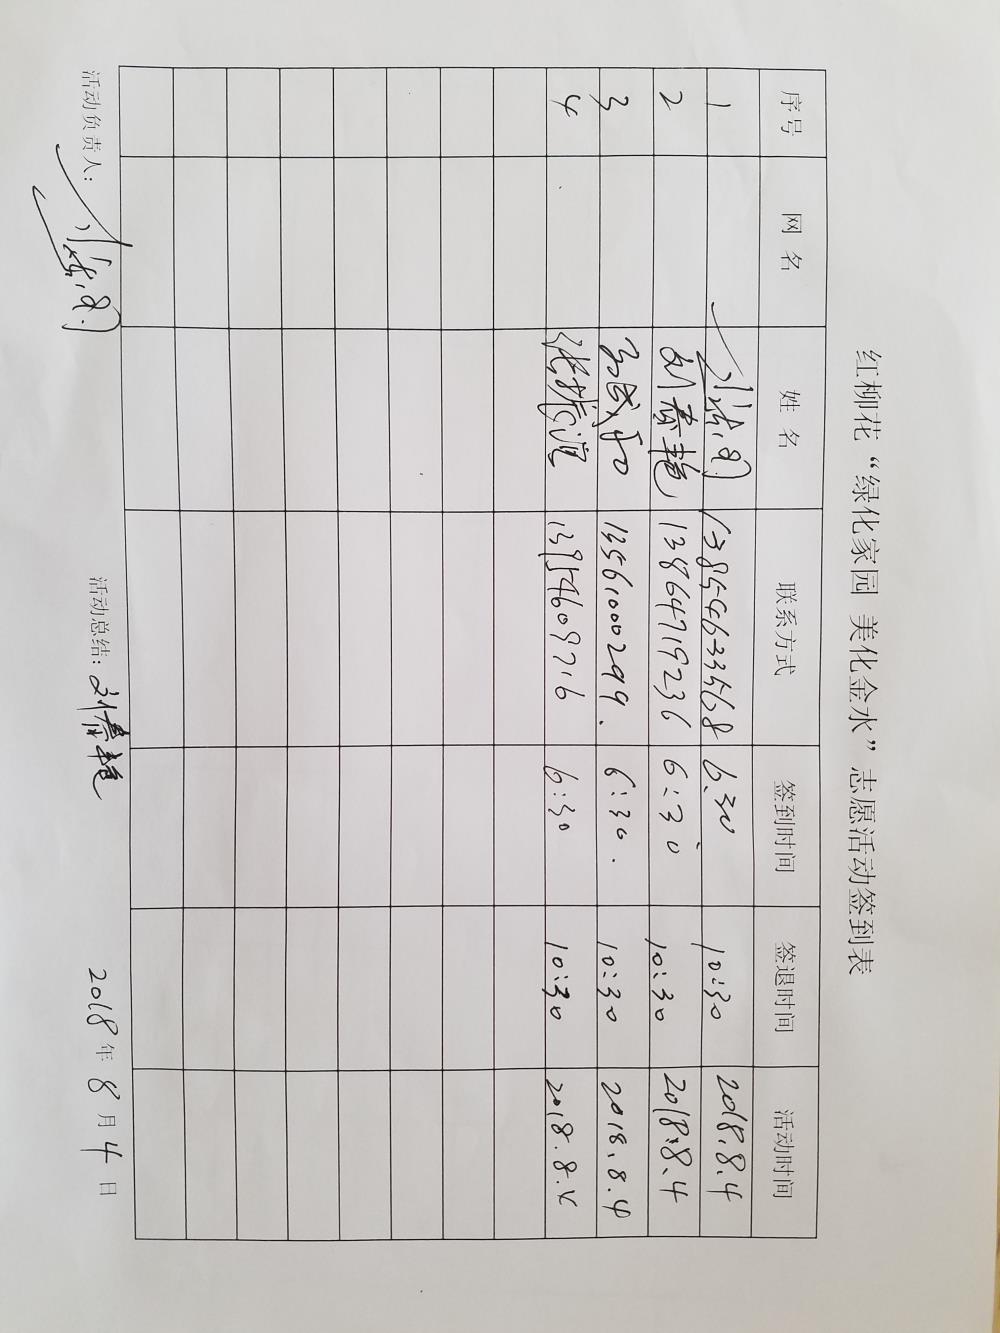 红柳花“绿化家园 美化金水”志愿活动签到表
序号 网 名 姓 名 联系方式 签到时间 签退时间 活动时间
1 13854633568 6:30 10:30 2018.8.4
2 刘春艳 13864719236 6:30 10:30 2018.8.4
3 13561000299. 6:30. 10:30 2018.8.4
4 张振滨 13954609716 6:30 10:30 2018.8.4
活动负责人: 活动总结: 刘春艳 2018年8月4日